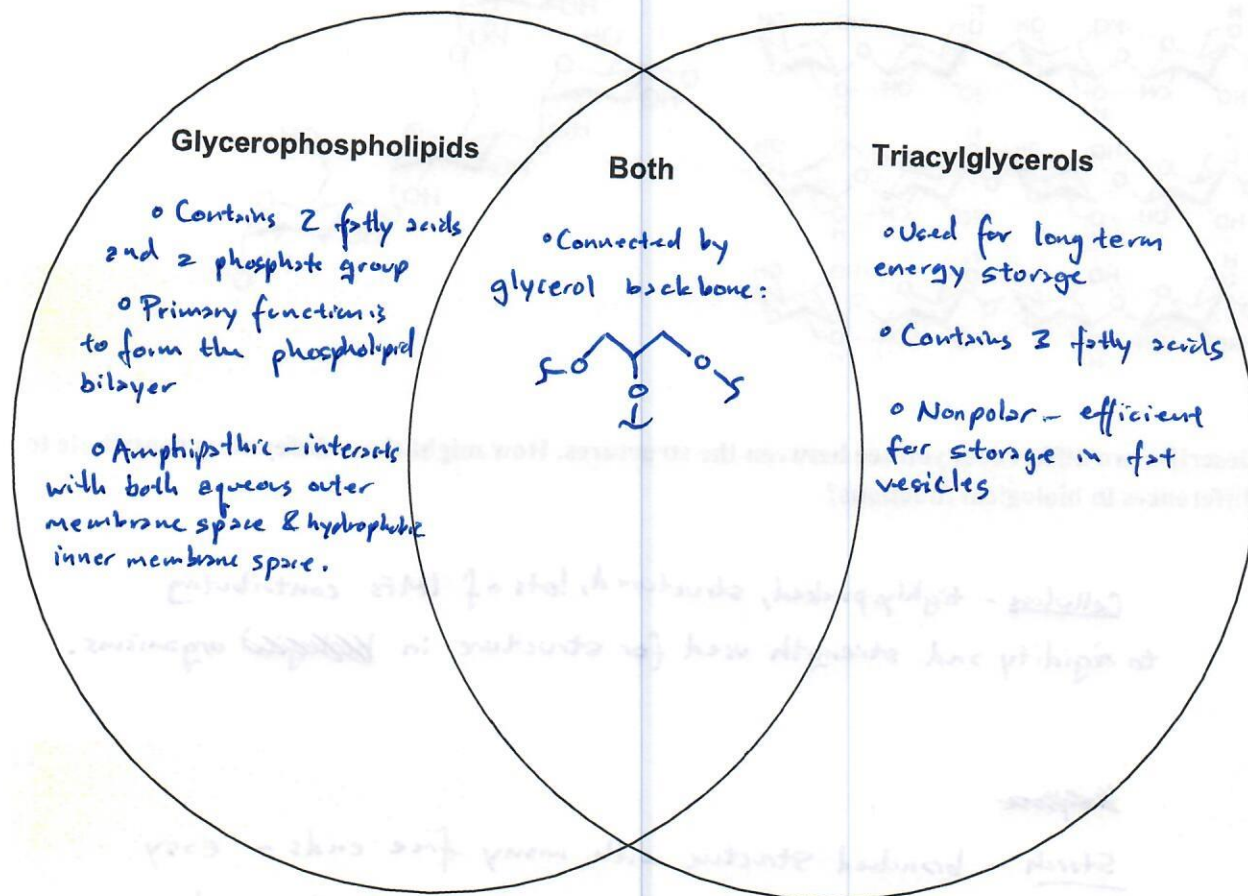 Glycerophospholipids
• Contains 2 fatty acids
and a phosphate group
• Primary function is
to form the phospholipid
bilayer
• Amphipathic - interacts
with both aqueous outer
membrane space & hydrophobic
inner membrane space.
Both
• Connected by
glycerol backbone:
O O
O
Triacylglycerols
• Used for long term
energy storage
• Contains 3 fatty acids
• Nonpolar - efficient
for storage in fat
vesicles